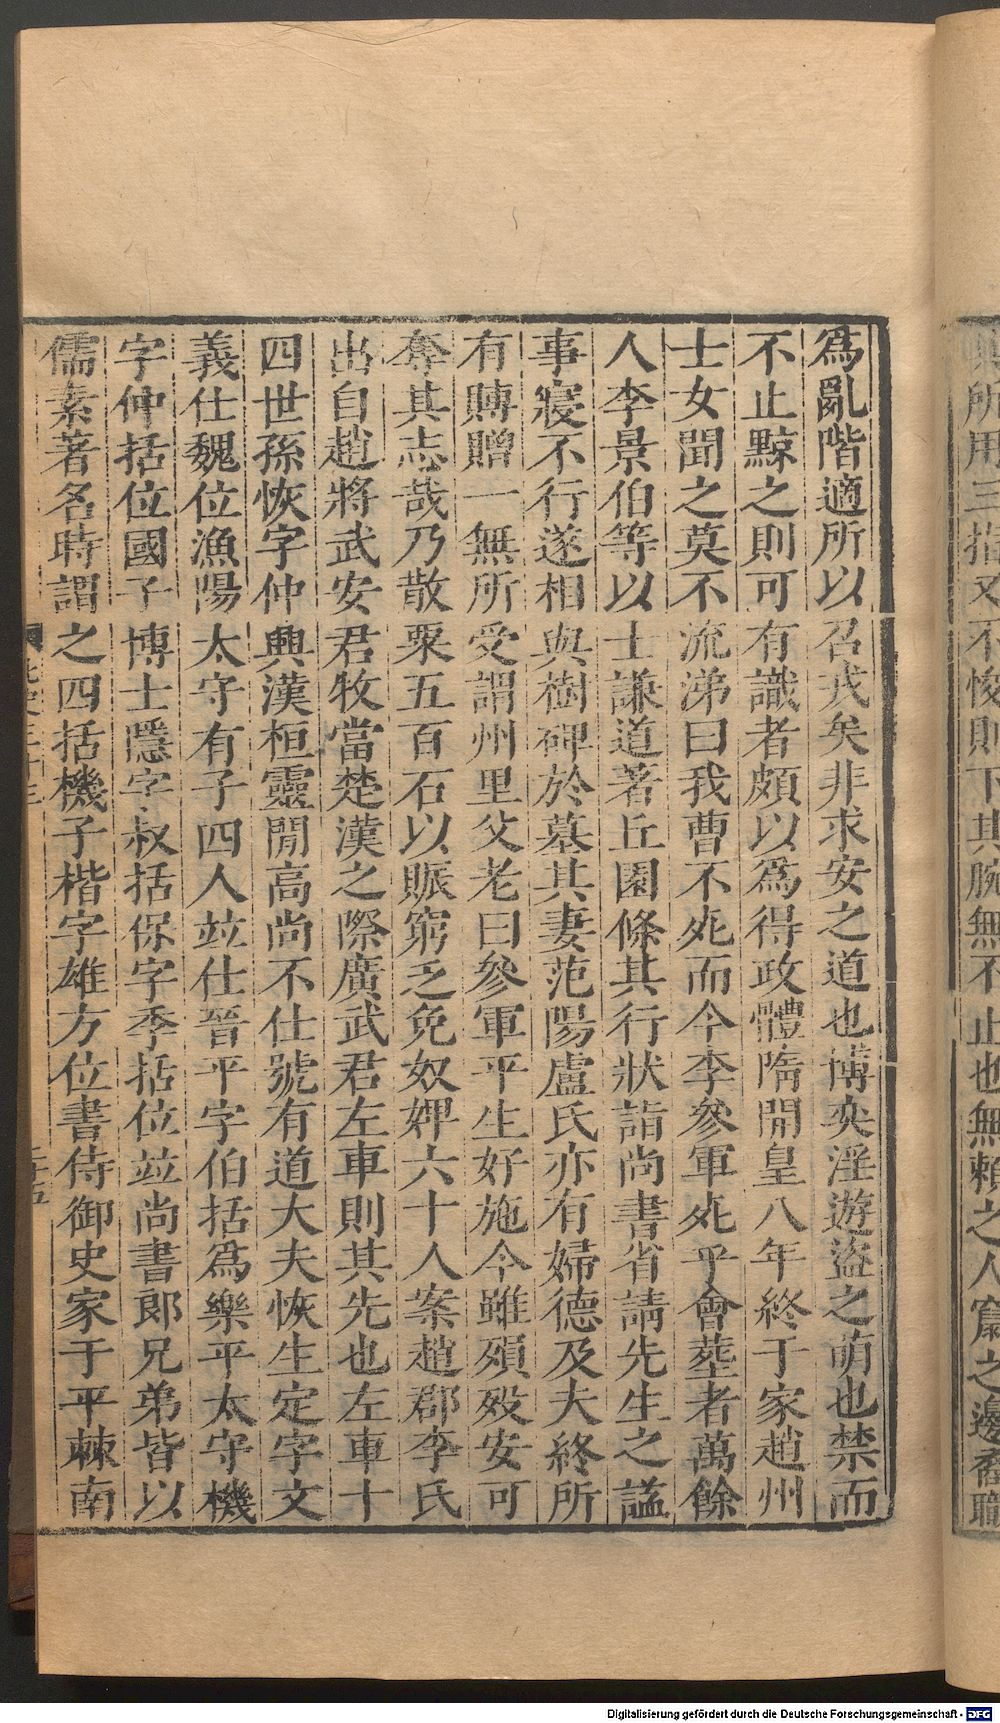 爲亂階適所以召戎矣非求安之道也博奕淫遊盜之萌也禁而
不止黥之則可有識者頗以爲得政體隋開皇八年終于家趙州
士女聞之莫不流涕曰我曹不死而今李參軍死乎會葬者萬餘
人李景伯等以士謙道著丘園條其行狀詣尚書省請先生之謚
事寢不行遂相與樹碑於墓其妻范陽盧氏亦有婦德及夫終所
有賻贈一無所受謂州里父老曰參軍平生好施今雖殞歿安可
奪其志哉乃散粟五百石以賑窮乏免奴婢六十人案趙郡李氏
出自趙將武安君牧當楚漢之際廣武君左車則其先也左車十
四世孫恢字仲興漢桓靈閒高尚不仕號有道大夫恢生定字文
義仕魏位漁陽太守有子四人並仕晉平字伯括爲樂平太守機
字仲括位國子博士隱字叔括保字季括位並尚書郎兄弟皆以
儒素著名時謂之四括機子楷字雄方位書侍御史家于平棘南
所用三指又不悛則下其腕無不止也無賴之人竄之邊裔職
Digitalisierung gefördert durch die Deutsche Forschungsgemeinschaft - DFG